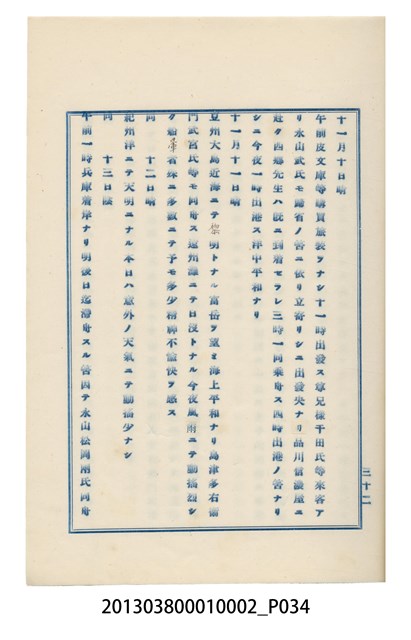 十一月十日晴
午前皮文庫等購買旅裝ヲナシ十一時出發ス尊兄樣平田氏等來客ア
リ永山武氏モ歸省ノ筈ニ依リ立寄リシニ出發央ナリ品川信濃屋ニ
赴ク西鄕先生ハ既ニ到着セラレ三時一同乘舟ス四時出港ノ筈ナリ
シニ今夜一時出港ス洋中平和ナリ
十一月十一日晴
豆州大島近海ニテ黎明トナル富岳ヲ望ミ海上平和ナリ島津多右衞
門武宮氏等モ同舟ス遠州灘ニテ日沒トナル今夜風雨ニテ動搖烈シ
ク船暈者殊ニ多數ニテ予モ多少精神不愉快ヲ感ス
同 十二日晴
紀州洋ニテ天明ニナル本日ハ意外ノ天氣ニテ動搖少ナシ
同 十三日陰
午前一時兵庫着岸ナリ明後日迄滯舟スル筈因テ永山松岡兩氏同舟
三十二
201303800010002_P034